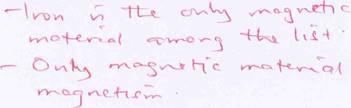 - Iron is the only magnetic
material among the list.
- Only magnetic material
magnetism.